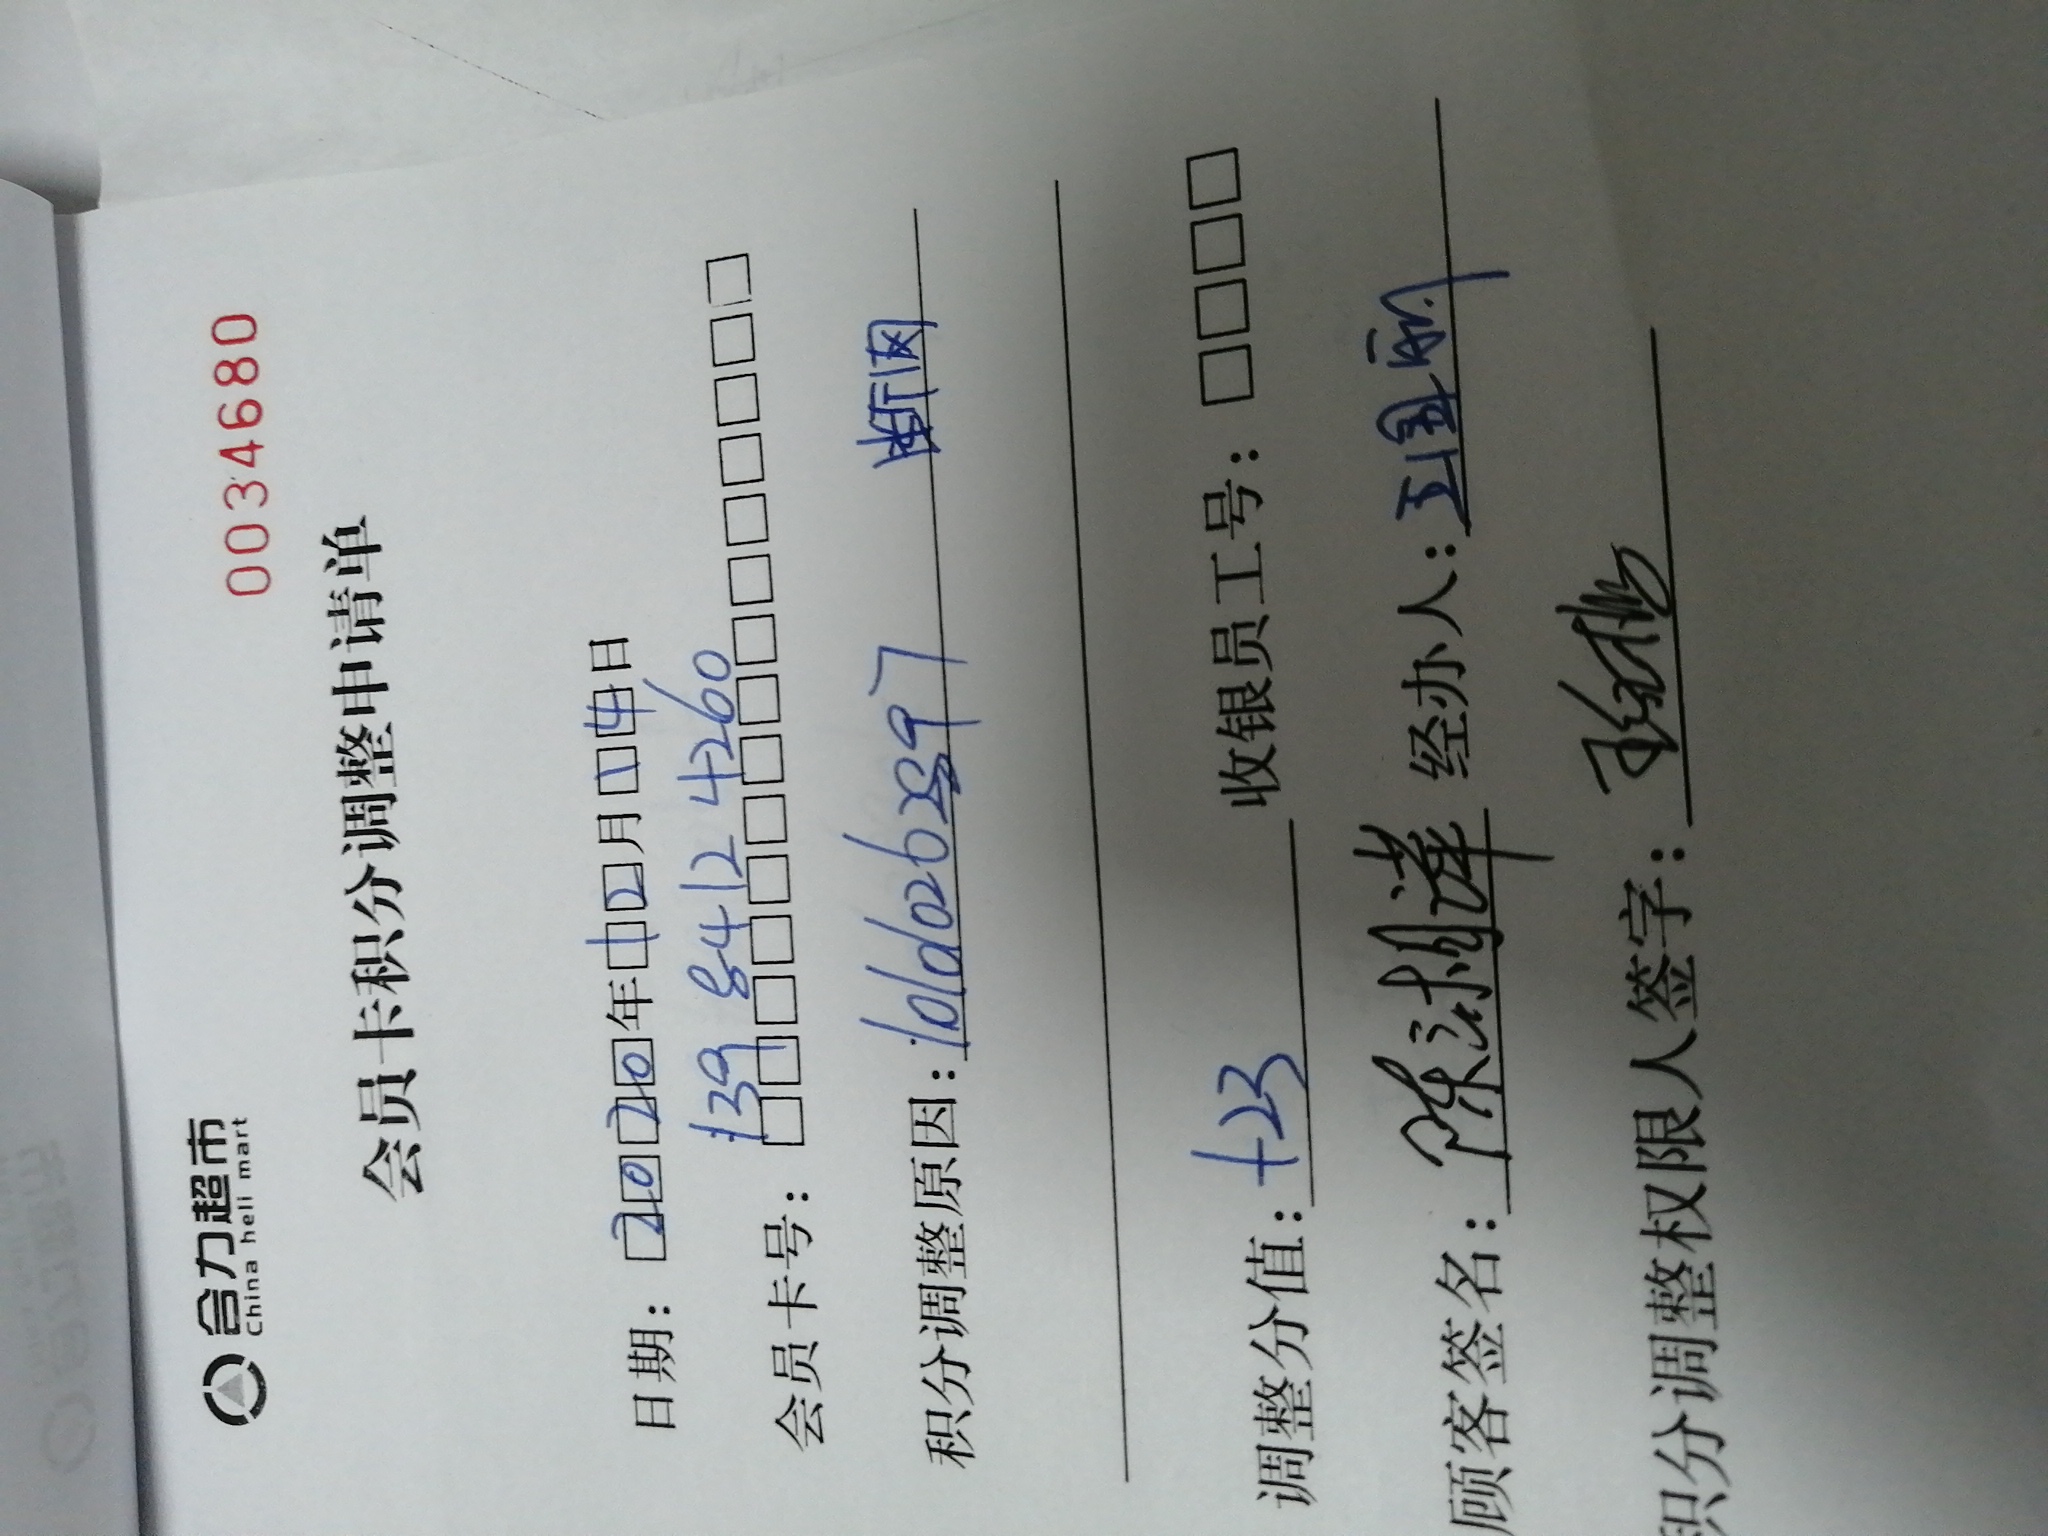 合力超市
China heli mart
0034680
会员卡积分调整申请单
日期：2020年12月14日
会员卡号：139 8412 4260
积分调整原因： 断网
调整分值：+23 收银员工号：□□□□
顾客签名： 经办人：
积分调整权限人签字：